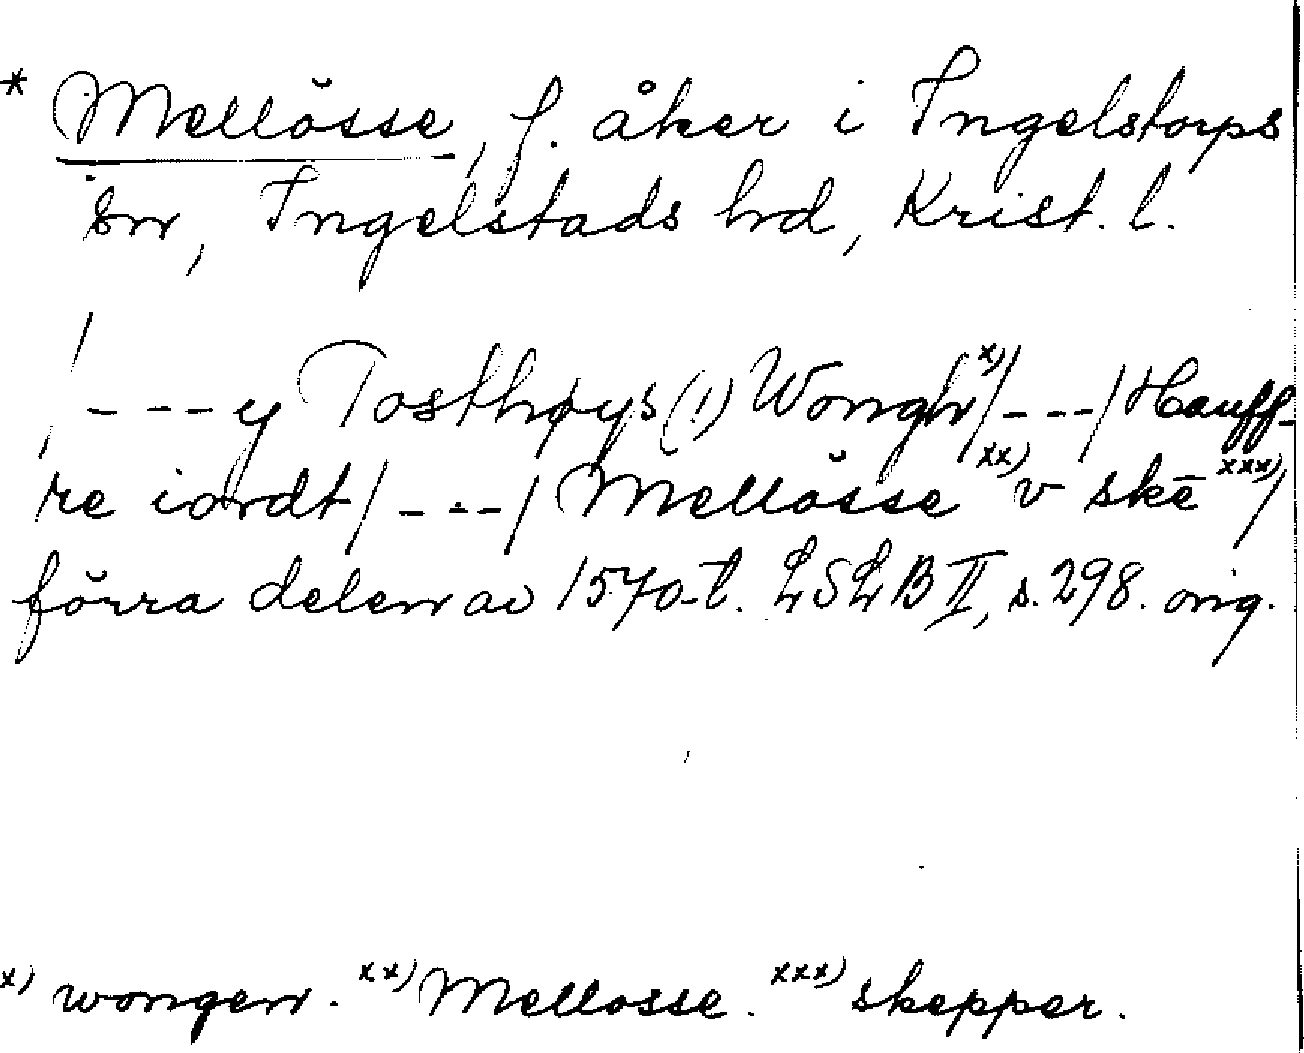 * Mellŏsse, f. åker i Ingelstorps
sn, Ingelstads hd, Krist. l.
/---y Tosthøys (!) Wongh x)/---/Hauff-
re iordt/---/Mellŏsse xx) v skē xxx)/
förra delen av 1570-t. LSLB II, s. 298. orig.
x) wongen. xx) Mellosse. xxx) skepper.